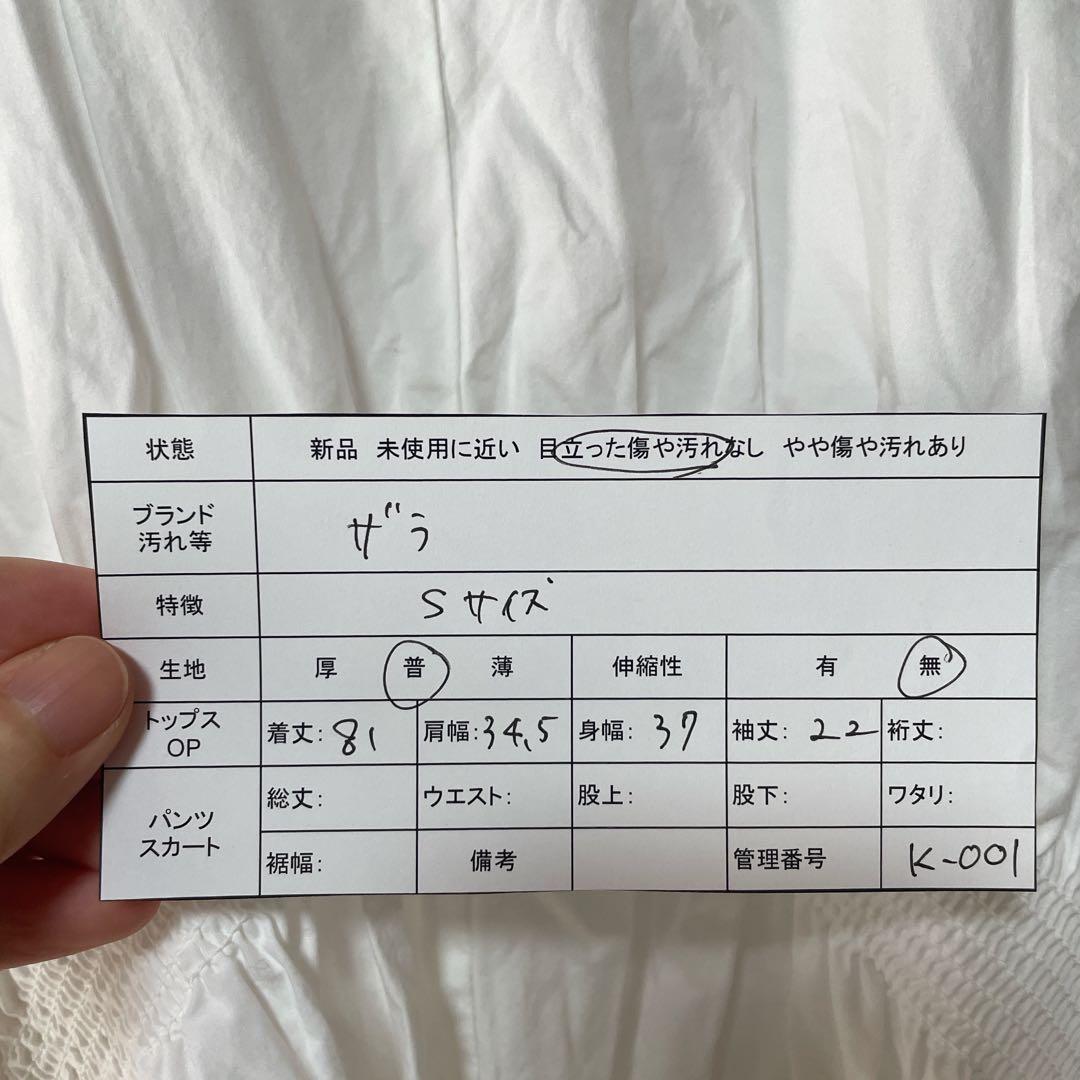 状態 新品 未使用に近い 目立った傷や汚れなし やや傷や汚れあり
ブランド
汚れ等 ザラ
特徴 Sサイズ
生地 厚 普 薄 伸縮性 有 無
トップス
OP 着丈: 81 肩幅: 34.5 身幅: 37 袖丈: 22 裄丈:
パンツ
スカート 総丈: ウエスト: 股上: 股下: ワタリ:
裾幅: 備考 管理番号 K-001